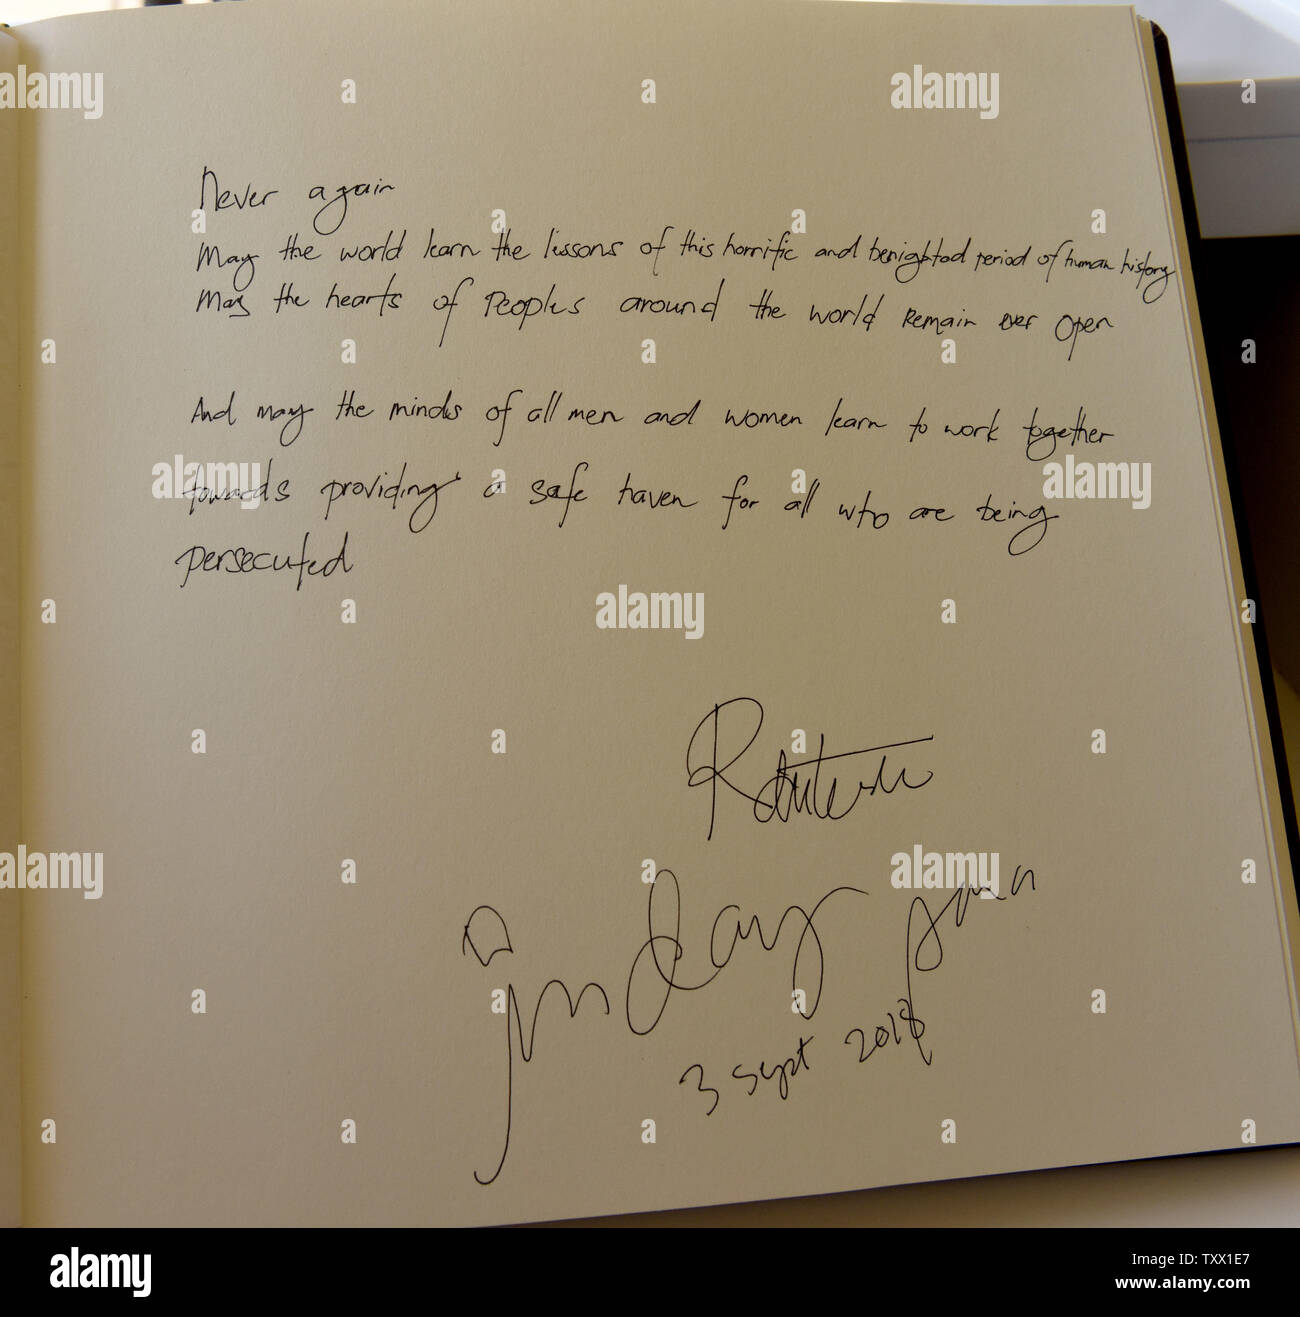 Never again
May the world learn the lessons of this horrific and benighted period of human history
May the hearts of peoples around the world remain ever open
And may the minds of all men and women learn to work together
towards providing a safe haven for all who are being
persecuted
inday sara
3 sept 2018
alamy
www.alamy.com
Image ID: TXX1E7